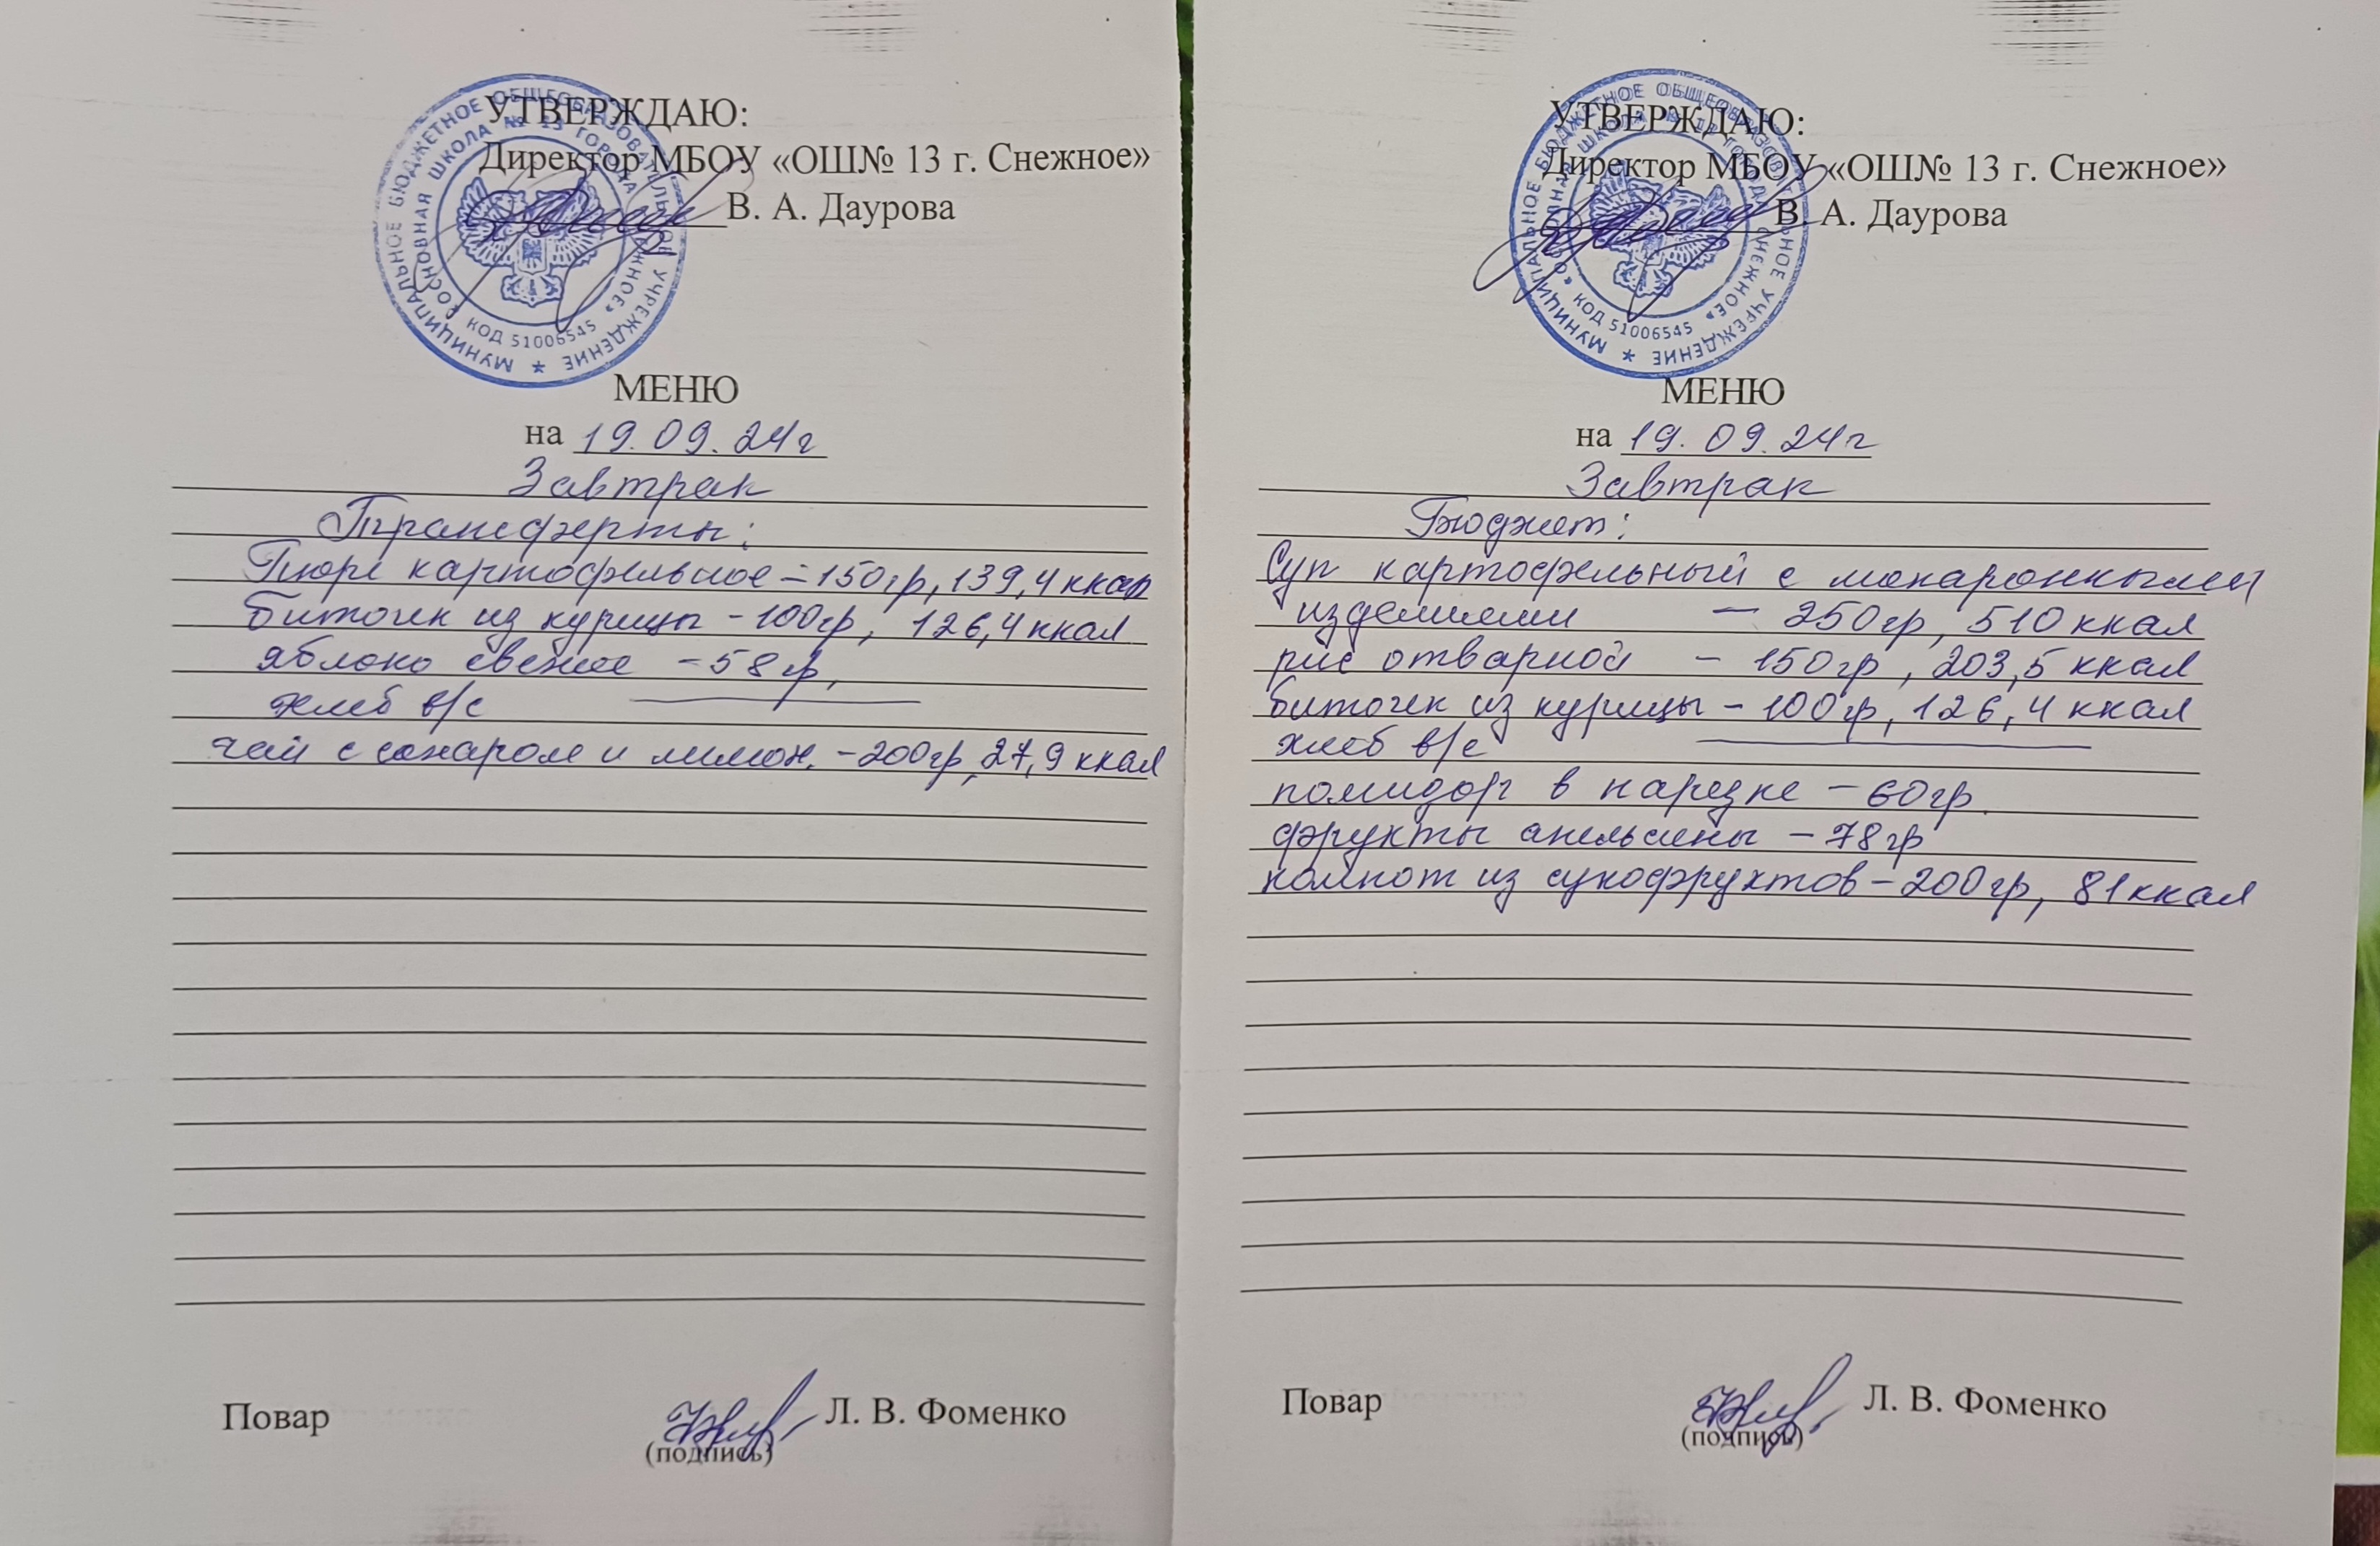 УТВЕРЖДАЮ:
Директор МБОУ «ОШ№ 13 г. Снежное»
В. А. Даурова
МУНИЦИПАЛЬНОЕ БЮДЖЕТНОЕ ОБЩЕОБРАЗОВАТЕЛЬНОЕ УЧРЕЖДЕНИЕ
«ОСНОВНАЯ ШКОЛА № 13 ГОРОДА СНЕЖНОЕ»
КОД 51006545
МЕНЮ
на 19.09.24г
Завтрак
Трансферты:
Пюре картофельное - 150гр, 139,4 ккал
Биточек из курицы - 100гр, 126,4 ккал
яблоко свежее - 58гр,
хлеб в/с
чай с сахаром и лимон. - 200гр, 27,9 ккал
Повар Л. В. Фоменко
(подпись)
УТВЕРЖДАЮ:
Директор МБОУ «ОШ№ 13 г. Снежное»
В. А. Даурова
МУНИЦИПАЛЬНОЕ БЮДЖЕТНОЕ ОБЩЕОБРАЗОВАТЕЛЬНОЕ УЧРЕЖДЕНИЕ
«ОСНОВНАЯ ШКОЛА № 13 ГОРОДА СНЕЖНОЕ»
КОД 51006545
МЕНЮ
на 19.09.24г
Завтрак
Бюджет:
Суп картофельный с макаронными
изделиями - 250гр, 510 ккал
рис отварной - 150гр, 203,5 ккал
биточек из курицы - 100гр, 126,4 ккал
хлеб в/с
помидор в нарезке - 60гр.
фрукты апельсины - 78гр
компот из сухофруктов - 200гр, 81 ккал
Повар Л. В. Фоменко
(подпись)